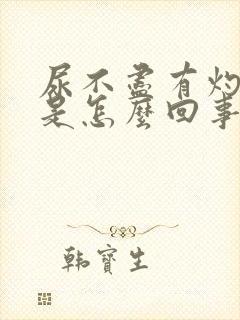 尿不盡有灼
是怎麼回事
韩寶生